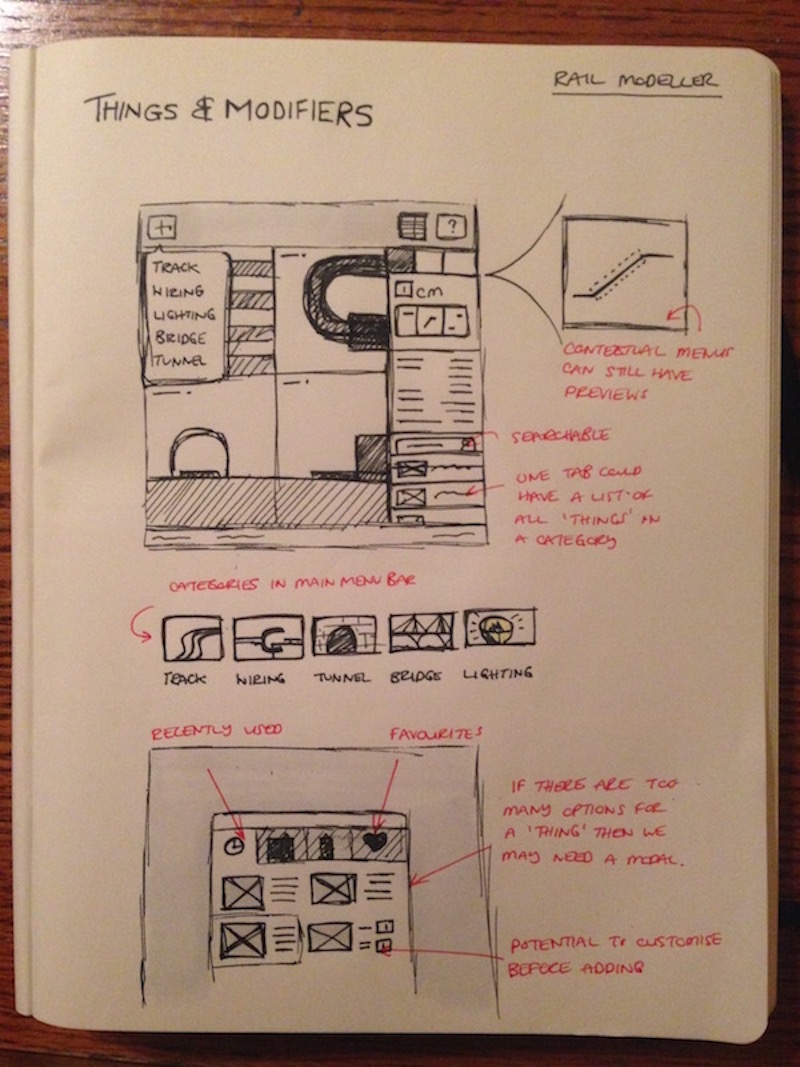 RAIL MODELLER
THINGS & MODIFIERS
+
?
TRACK
WIRING
LIGHTING
BRIDGE
TUNNEL
cm
CONTEXTUAL MENUS
CAN STILL HAVE
PREVIEWS
SEARCHABLE
ONE TAB COULD
HAVE A LIST OF
ALL 'THINGS' IN
A CATEGORY
CATEGORIES IN MAIN MENU BAR
TRACK
WIRING
TUNNEL
BRIDGE
LIGHTING
RECENTLY USED
FAVOURITES
IF THERE ARE TOO
MANY OPTIONS FOR
A 'THING' THEN WE
MAY NEED A MODAL.
POTENTIAL TO CUSTOMISE
BEFORE ADDING